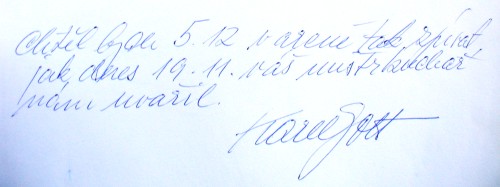 Chtěl bych 5.12 v aréně tak zpívat,
jak dnes 19.11. váš mistr kuchař
nám uvařil.
Karel Gott